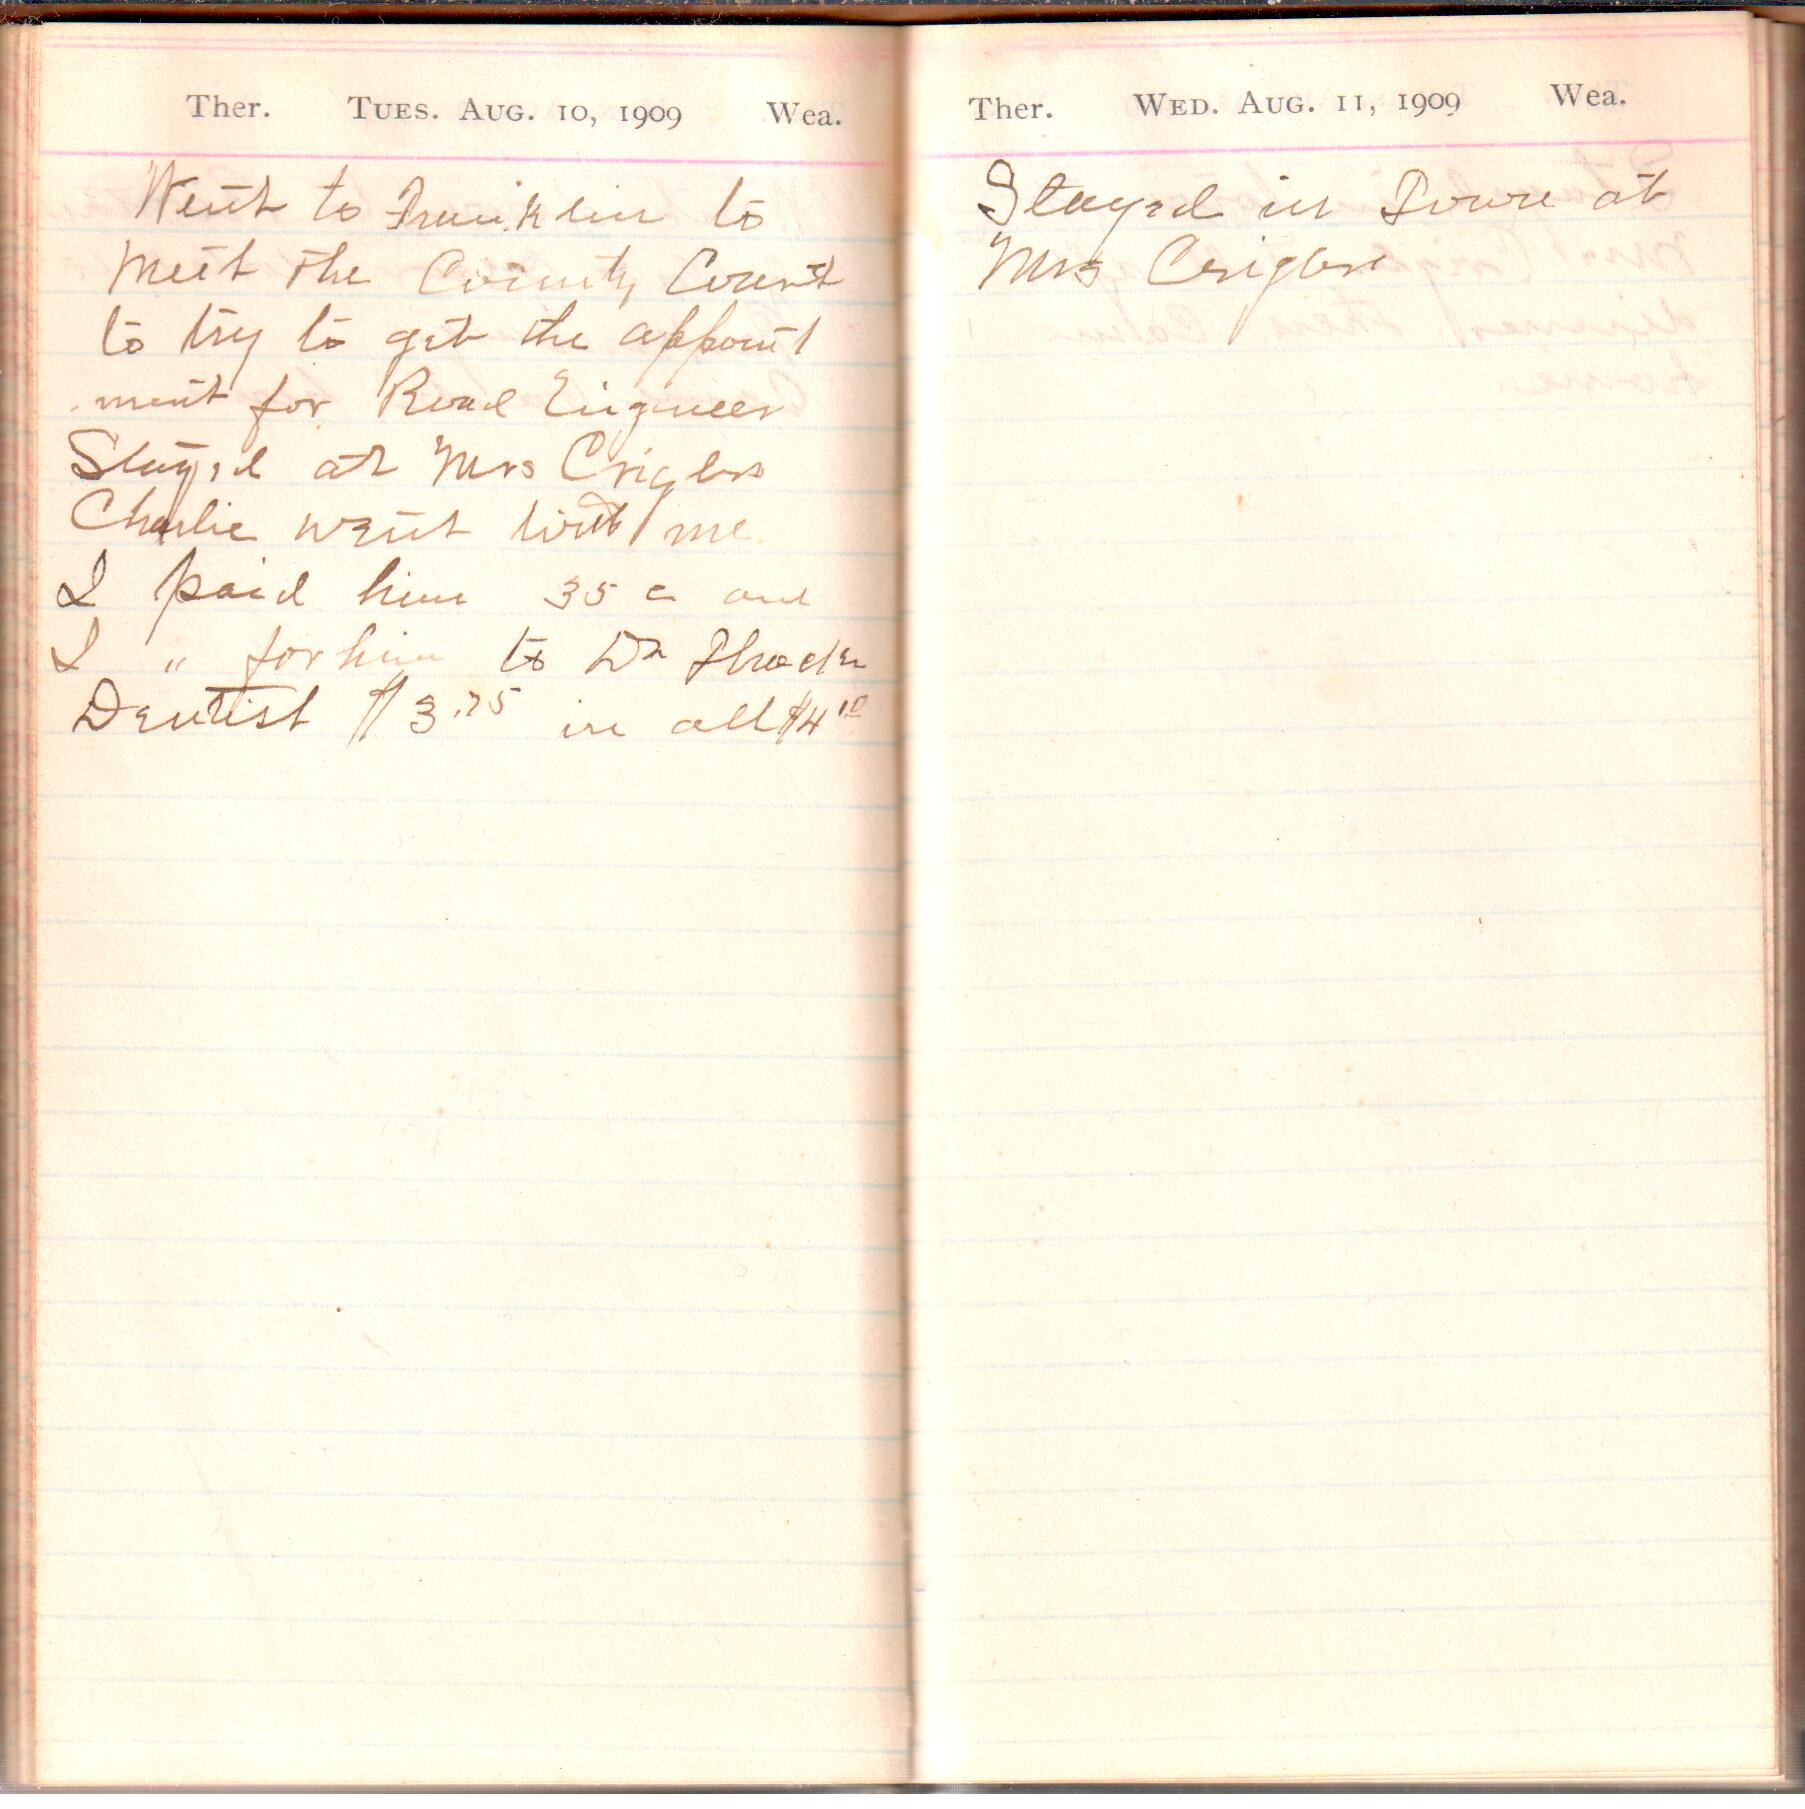 Ther. Tues. Aug. 10, 1909 Wea.
Went to Franklin to
Meet the County Court
to try to get the appoint
ment for Road Engineer
Stayed at Mrs Criglers
Charlie went with me
I paid him 35 c and
I " for him to Dr
Dentist $3.75 in all $4 10
Ther. Wed. Aug. 11, 1909 Wea.
Stayed in Town at
Mrs Criglers